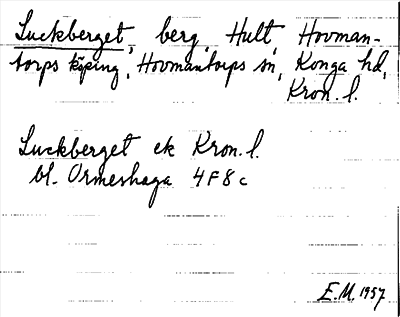 Luckberget, berg, Hult, Hovman-
torps köping, Hovmantorps sn, Konga hd,
Kron. l.
Luckberget ek Kron. l.
bl. Ormeshaga 4F8c
E.M. 1957